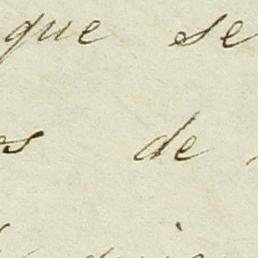 que se
es de